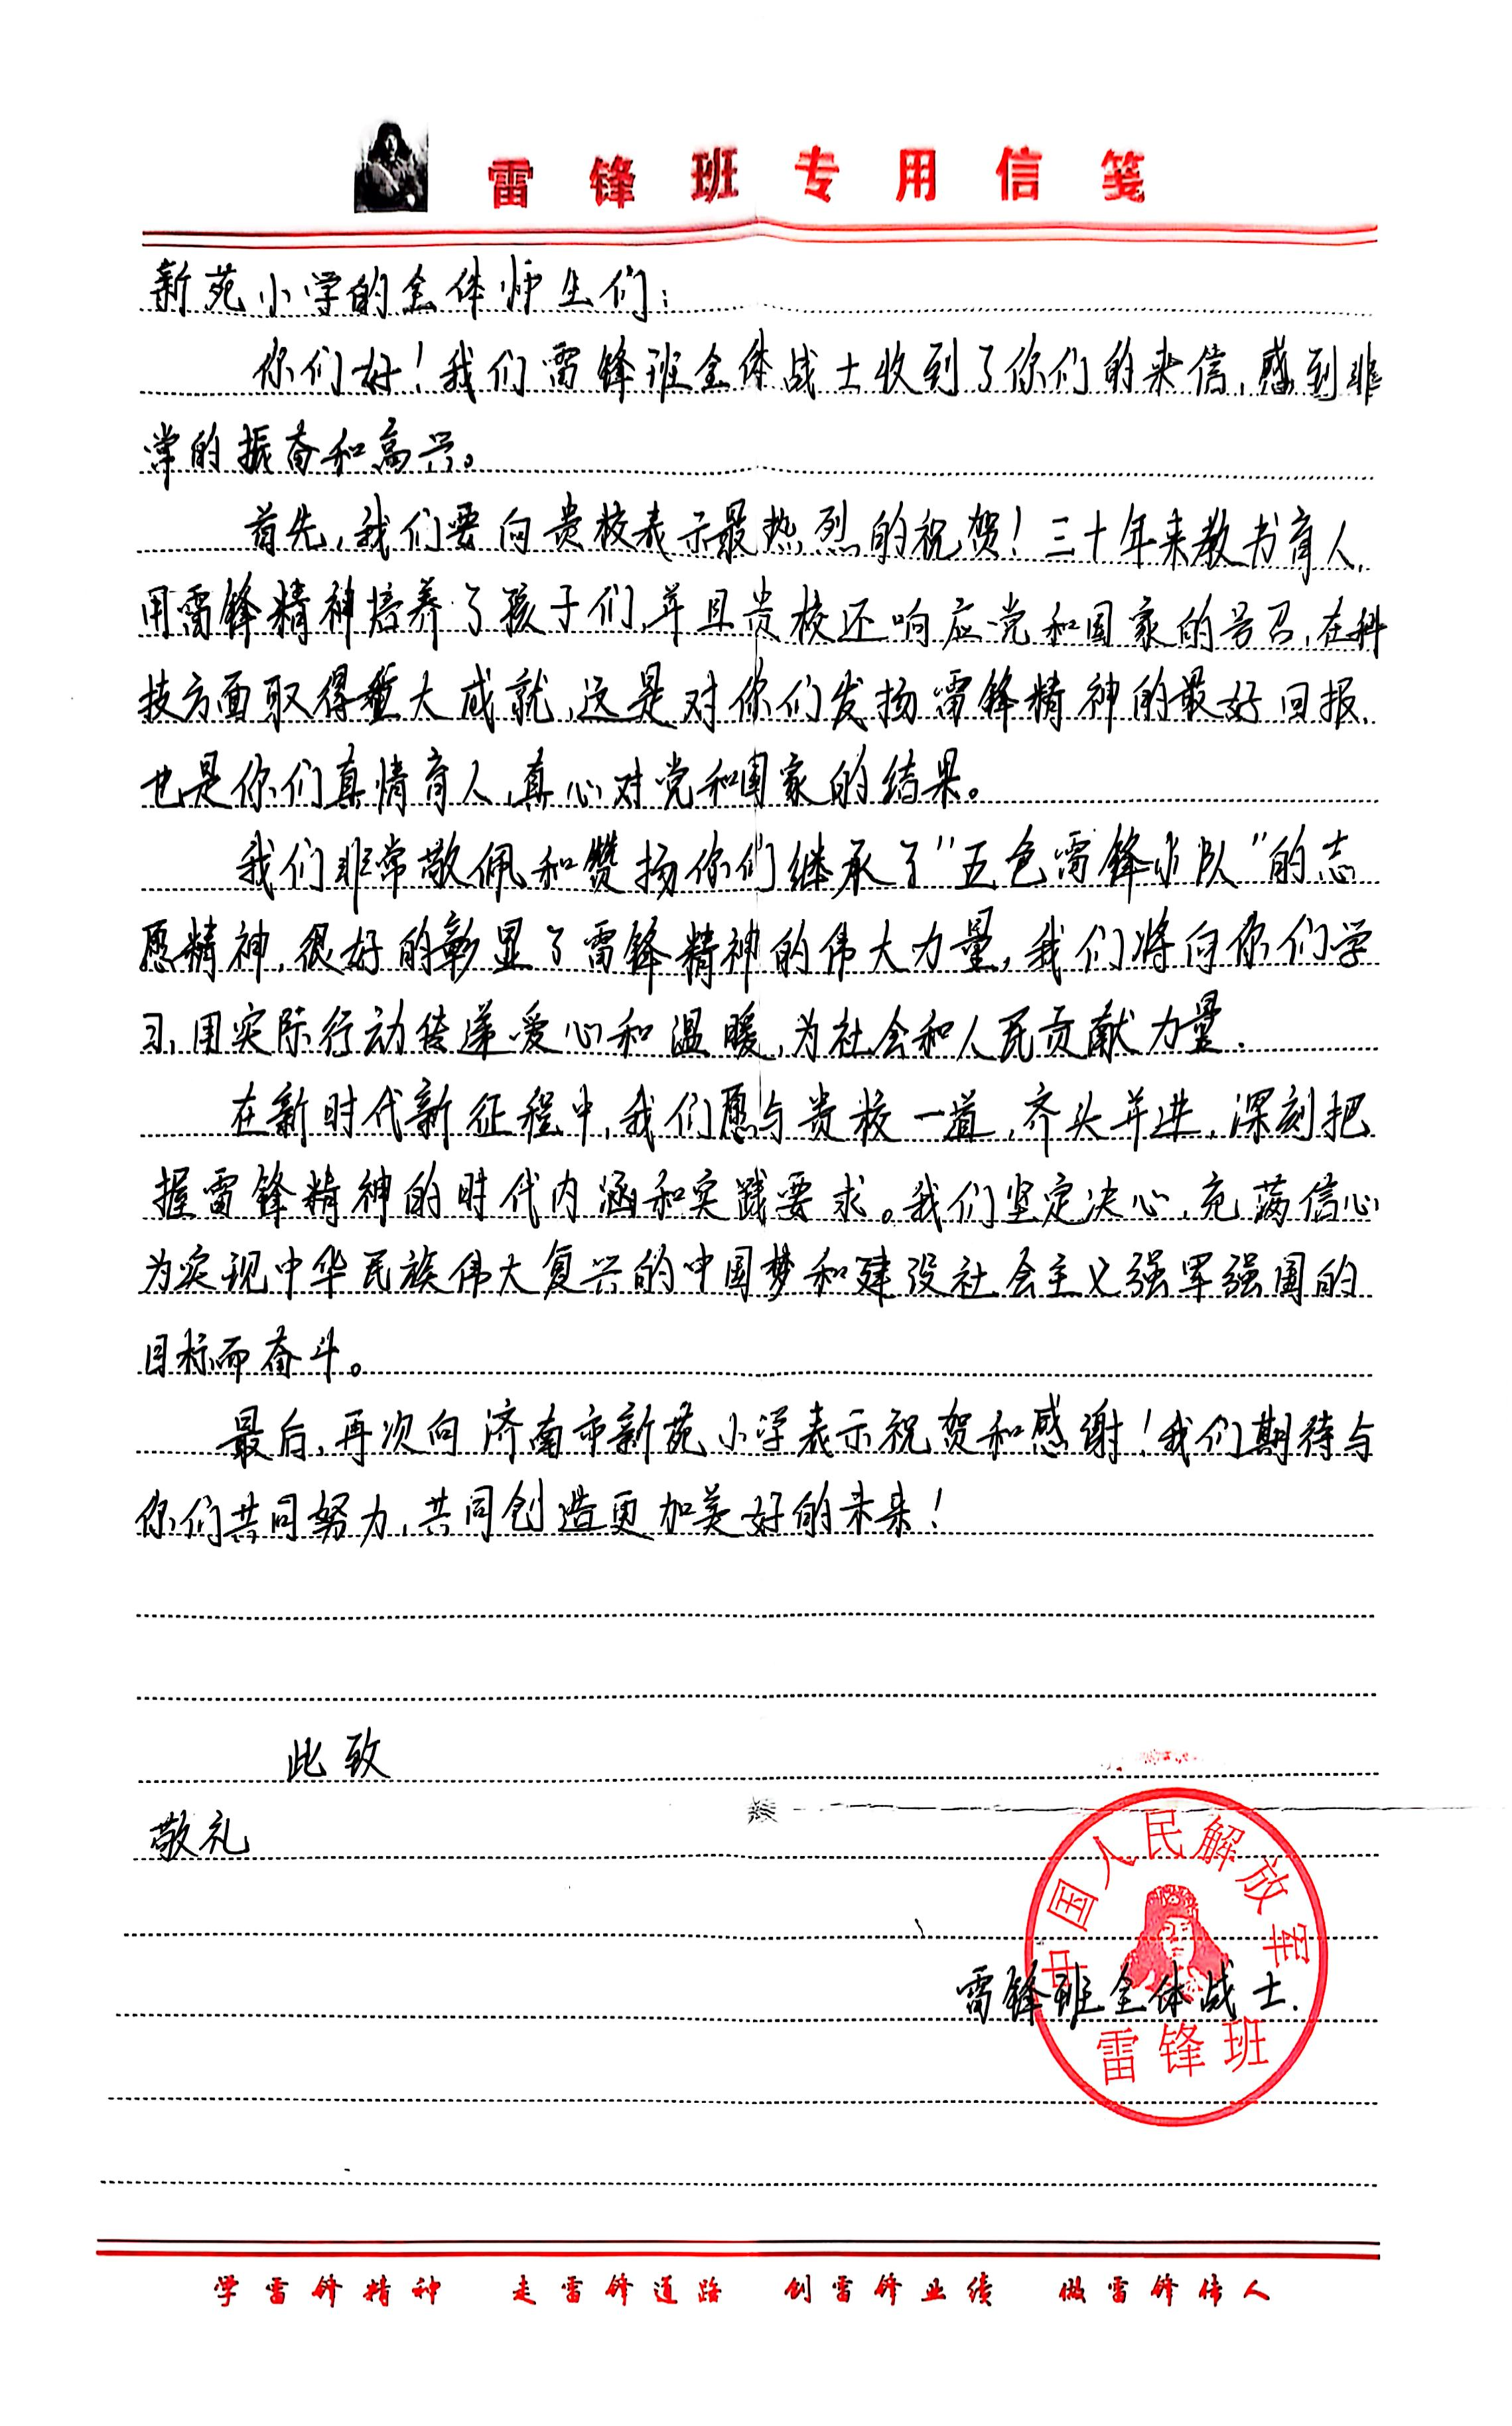 雷锋班专用信笺
新苑小学的全体师生们：
你们好！我们雷锋班全体战士收到了你们的来信，感到非
常的振奋和高兴。
首先，我们要向贵校表示最热烈的祝贺！三十年来教书育人，
用雷锋精神培养了孩子们，并且贵校还响应党和国家的号召，在科
技方面取得重大成就，这是对你们发扬雷锋精神的最好回报，
也是你们真情育人，真心对党和国家的结果。
我们非常敬佩和赞扬你们继承了“五色雷锋小队”的志
愿精神，很好的彰显了雷锋精神的伟大力量，我们将向你们学
习，用实际行动传递爱心和温暖，为社会和人民贡献力量.
在新时代新征程中，我们愿与贵校一道，齐头并进，深刻把
握雷锋精神的时代内涵和实践要求。我们坚定决心，充满信心
为实现中华民族伟大复兴的中国梦和建设社会主义强军强国的
目标而奋斗。
最后，再次向济南市新苑小学表示祝贺和感谢！我们期待与
你们共同努力，共同创造更加美好的未来！
此致
敬礼
中国人民解放军
雷锋班全体战士.
雷锋班
学雷锋精神 走雷锋道路 创雷锋业绩 做雷锋传人